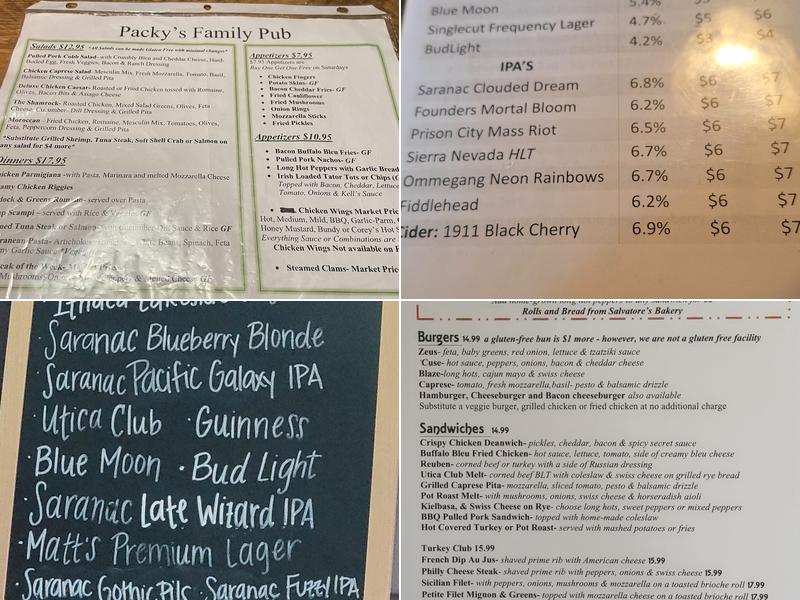 Packy's Family Pub
Salads $12.95 *All Salads can be made Gluten Free with minimal changes*
Pulled Pork Cobb Salad- with Crumbly Bleu and Cheddar Cheese, Hard-
Boiled Egg, Fresh Veggies, Bacon & Ranch Dressing
Chicken Caprese Salad- Mesculin Mix, Fresh Mozzarella, Tomato, Basil,
Balsamic Dressing & Grilled Pita
Deluxe Chicken Caesar- Roasted or Fried Chicken tossed with Romaine,
Olives, Bacon Bits & Asiago Cheese
The Shamrock- Roasted Chicken, Mixed Salad Greens, Olives, Feta
Cheese, Cucumber- Dill Dressing & Grilled Pita
Moroccan- Fried Chicken, Romaine, Mesculin Mix, Tomatoes, Olives,
Feta, Peppercorn Dressing & Grilled Pita
*Substitute Grilled Shrimp, Tuna Steak, Soft Shell Crab or Salmon on
any salad for $4 more*
Dinners $17.95
Chicken Parmigiana -with Pasta, Marinara and melted Mozzarella Cheese
Chicken Riggies
& Greens Romano- served over Pasta
Scampi – served with Rice & GF
Tuna Steak Sauce & Rice GF
Pasta- Artichokes Beans, Spinach, Feta
Garlic Sauce
of the Week-
Mushrooms & Cheese GF
Appetizers $7.95
$7.95 Appetizers are
Buy One Get One Free on Saturdays
• Chicken Fingers
• Potato Skins- GF
• Bacon Cheddar Fries- GF
• Fried Cauliflower
• Fried Mushrooms
• Onion Rings
• Mozzarella Sticks
• Fried Pickles
Appetizers $10.95
• Bacon Buffalo Bleu Fries- GF
• Pulled Pork Nachos- GF
• Long Hot Peppers with Garlic Bread
• Irish Loaded Tator Tots or Chips (G
Topped with Bacon, Cheddar, Lettuce
Tomato, Onions & Kell's Sauce
• Chicken Wings Market Pric
Hot, Medium, Mild, BBQ, Garlic-Parm,
Honey Mustard, Bundy or Corey's Hot S
Everything Sauce or Combinations are
Chicken Wings Not available on F
• Steamed Clams- Market Pric
Blue Moon 5.4% $5 $6
Singlecut Frequency Lager 4.7% $5 $6
BudLight 4.2% $3 $4
IPA'S
Saranac Clouded Dream 6.8% $6
Founders Mortal Bloom 6.2% $6 $7
Prison City Mass Riot 6.5% $6 $7
Sierra Nevada HLT 6.7% $6 $7
Ommegang Neon Rainbows 6.7% $6 $7
Fiddlehead 6.2% $6 $7
Cider: 1911 Black Cherry 6.9% $6 $7
Ithaca Lakeside
· Saranac Blueberry Blonde
· Saranac Pacific Galaxy IPA
· Utica Club · Guinness
· Blue Moon · Bud Light
· Saranac Late Witard IPA
· Matt's Premium Lager
· Saranac Gothic Pils · Saranac Fuzzy IPA
Add home-grown long hot peppers to any sandwich for
Rolls and Bread from Salvatore's Bakery
Burgers 14.99 a gluten-free bun is $1 more - however, we are not a gluten free facility
Zeus- feta, baby greens, red onion, lettuce & tzatziki sauce
'Cuse- hot sauce, peppers, onions, bacon & cheddar cheese
Blaze-long hots, cajun mayo & swiss cheese
Caprese- tomato, fresh mozzarella,basil- pesto & balsamic drizzle
Hamburger, Cheeseburger and Bacon cheeseburger also available
Substitute a veggie burger, grilled chicken or fried chicken at no additional charge
Sandwiches 14.99
Crispy Chicken Deanwich- pickles, cheddar, bacon & spicy secret sauce
Buffalo Bleu Fried Chicken- hot sauce, lettuce, tomato, side of creamy bleu cheese
Reuben- corned beef or turkey with a side of Russian dressing
Utica Club Melt- corned beef BLT with coleslaw & swiss cheese on grilled rye bread
Grilled Caprese Pita- mozzarella, sliced tomato, pesto & balsamic drizzle
Pot Roast Melt- with mushrooms, onions, swiss cheese & horseradish aioli
Kielbasa, & Swiss Cheese on Rye- choose long hots, sweet peppers or mixed peppers
BBQ Pulled Pork Sandwich- topped with home-made coleslaw
Hot Covered Turkey or Pot Roast- served with mashed potatoes or fries
Turkey Club 15.99
French Dip Au Jus- shaved prime rib with American cheese 15.99
Philly Cheese Steak- shaved prime rib with peppers, onions & swiss cheese 15.99
Sicilian Filet- with peppers, onions, mushrooms & mozzarella on a toasted brioche roll 17.99
Petite Filet Mignon & Greens- topped with mozzarella cheese on a toasted brioche roll 17.99